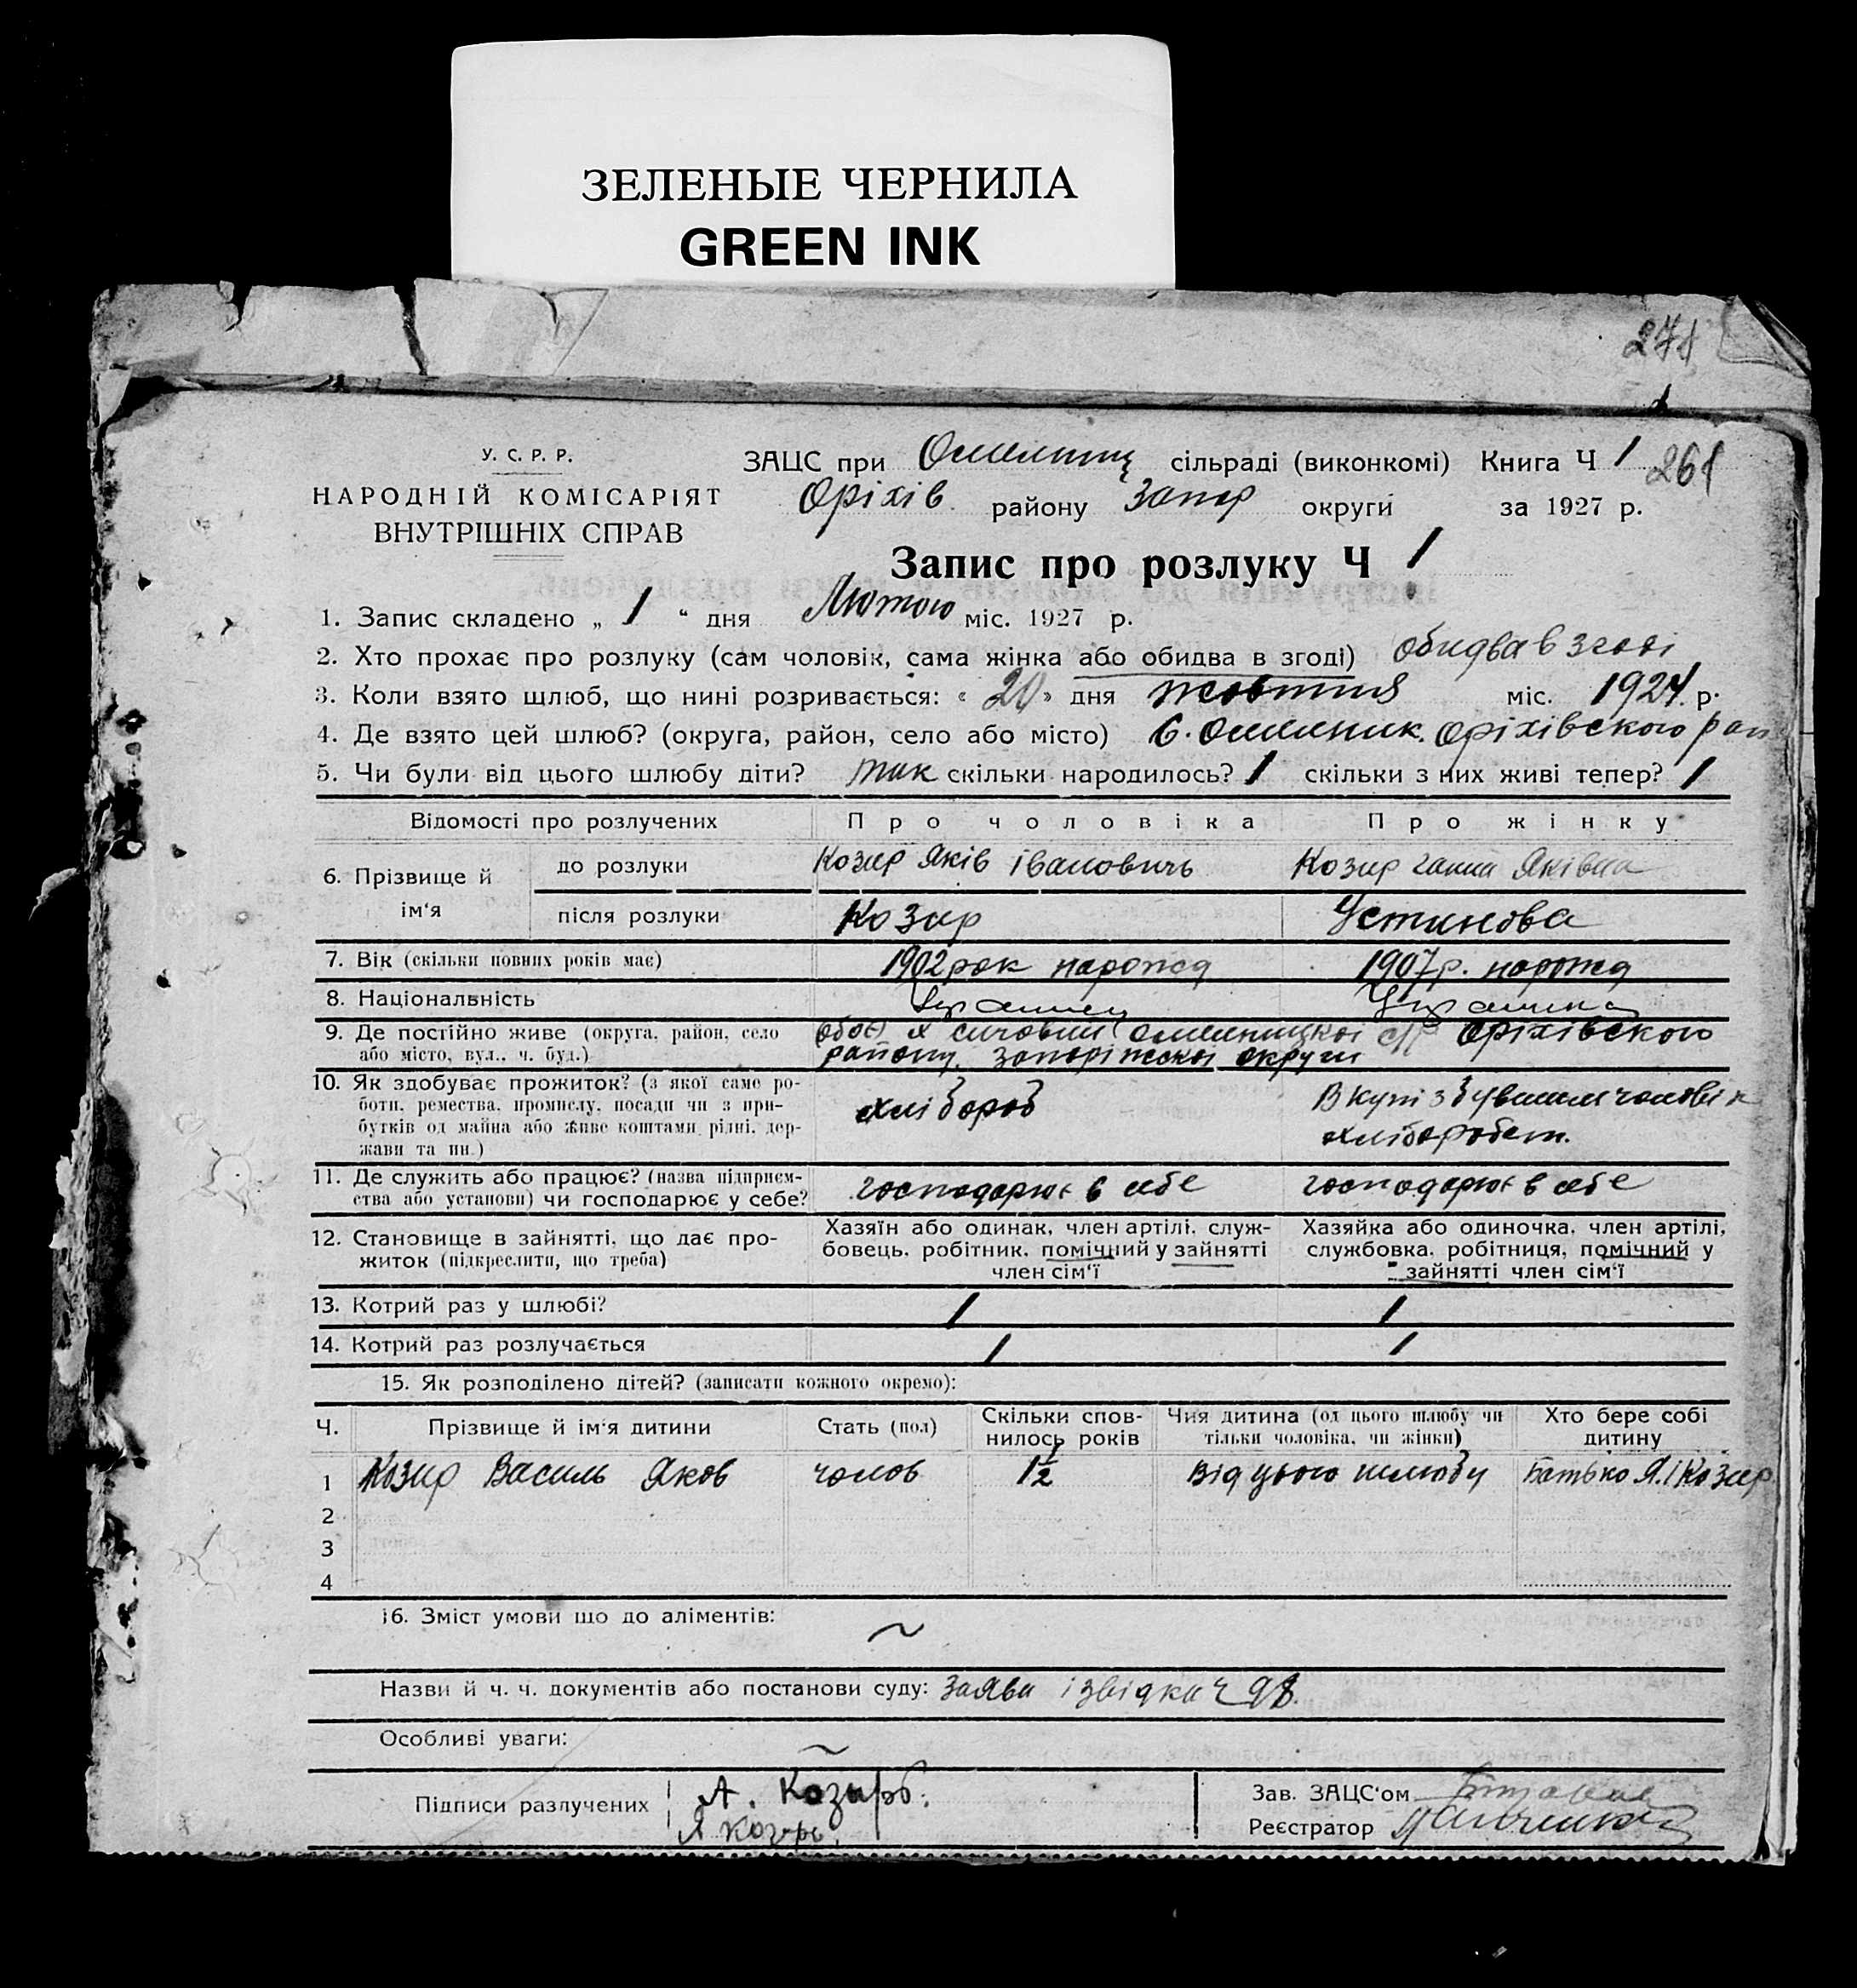 ЗЕЛЕНЫЕ ЧЕРНИЛА
GREEN INK
271
У. С. Р. Р.
НАРОДНІЙ КОМІСАРІЯТ
ВНУТРІШНІХ СПРАВ
ЗАЦС при Омельниц сільраді (виконкомі) Книга Ч 1 261
Оріхів району Запор округи за 1927 р.
Запис про розлуку Ч 1
1. Запис складено „ 1 “ дня Лютого міс. 1927 р.
2. Хто прохає про розлуку (сам чоловік, сама жінка або обидва в згоді) обидва в згоді
3. Коли взято шлюб, що нині розривається: « 20 » дня жовтня міс. 1924 р.
4. Де взято цей шлюб? (округа, район, село або місто) С. Омельник. Оріхівского рай
5. Чи були від цього шлюбу діти? так скільки народилось? 1 скільки з них живі тепер? 1
Відомості про розлучених Про чоловіка Про жінку
6. Прізвище й ім‘я до розлуки Козир Яків Івановичь Козир Ганна Яківна
після розлуки Козир Устинова
7. Вік (скільки повних років має) 1902 рок нарожд 1907 р. нарожд
8. Національність Украинец Украинка
9. Де постійно живе (округа, район, село або місто, вул., ч. буд.) (обоє) х Омельницкої с/р Оріхівского
району. Запоріжскої округи
10. Як здобуває прожиток? (з якої саме роботи, ремества, промислу, посади чи з прибутків од майна або живе коштами рідні, держави та ин.) хлібороб Вкупі з бувшим чоловік
хлібороб
11. Де служить або працює? (назва підприємства або установи) чи господарює у себе? господарює в себе господарює в себе
12. Становище в зайнятті, що дає прожиток (підкреслити, що треба) Хазяїн або одинак, член артілі, службовець, робітник, помічний у зайнятті член сім‘ї Хазяйка або одиночка, член артілі, службовка, робітниця, помічний у зайнятті член сім‘ї
13. Котрий раз у шлюбі? 1 1
14. Котрий раз розлучається 1 1
15. Як розподілено дітей? (записати кожного окремо):
Ч. Прізвище й ім‘я дитини Стать (пол) Скільки сповнилось років Чия дитина (од цього шлюбу чи тільки чоловіка, чи жінки) Хто бере собі дитину
1 Козир Василь Яков чолов 1 1/2 від цього шлюбу Батько Я. І Козир
2
3
4
16. Зміст умови що до аліментів: ~
Назви й ч. ч. документів або постанови суду: Заява і звідка Ч 98.
Особливі уваги: ~
Підписи разлучених А. Козырь.
Я Козырь.
Зав. ЗАЦС‘ом
Реєстратор